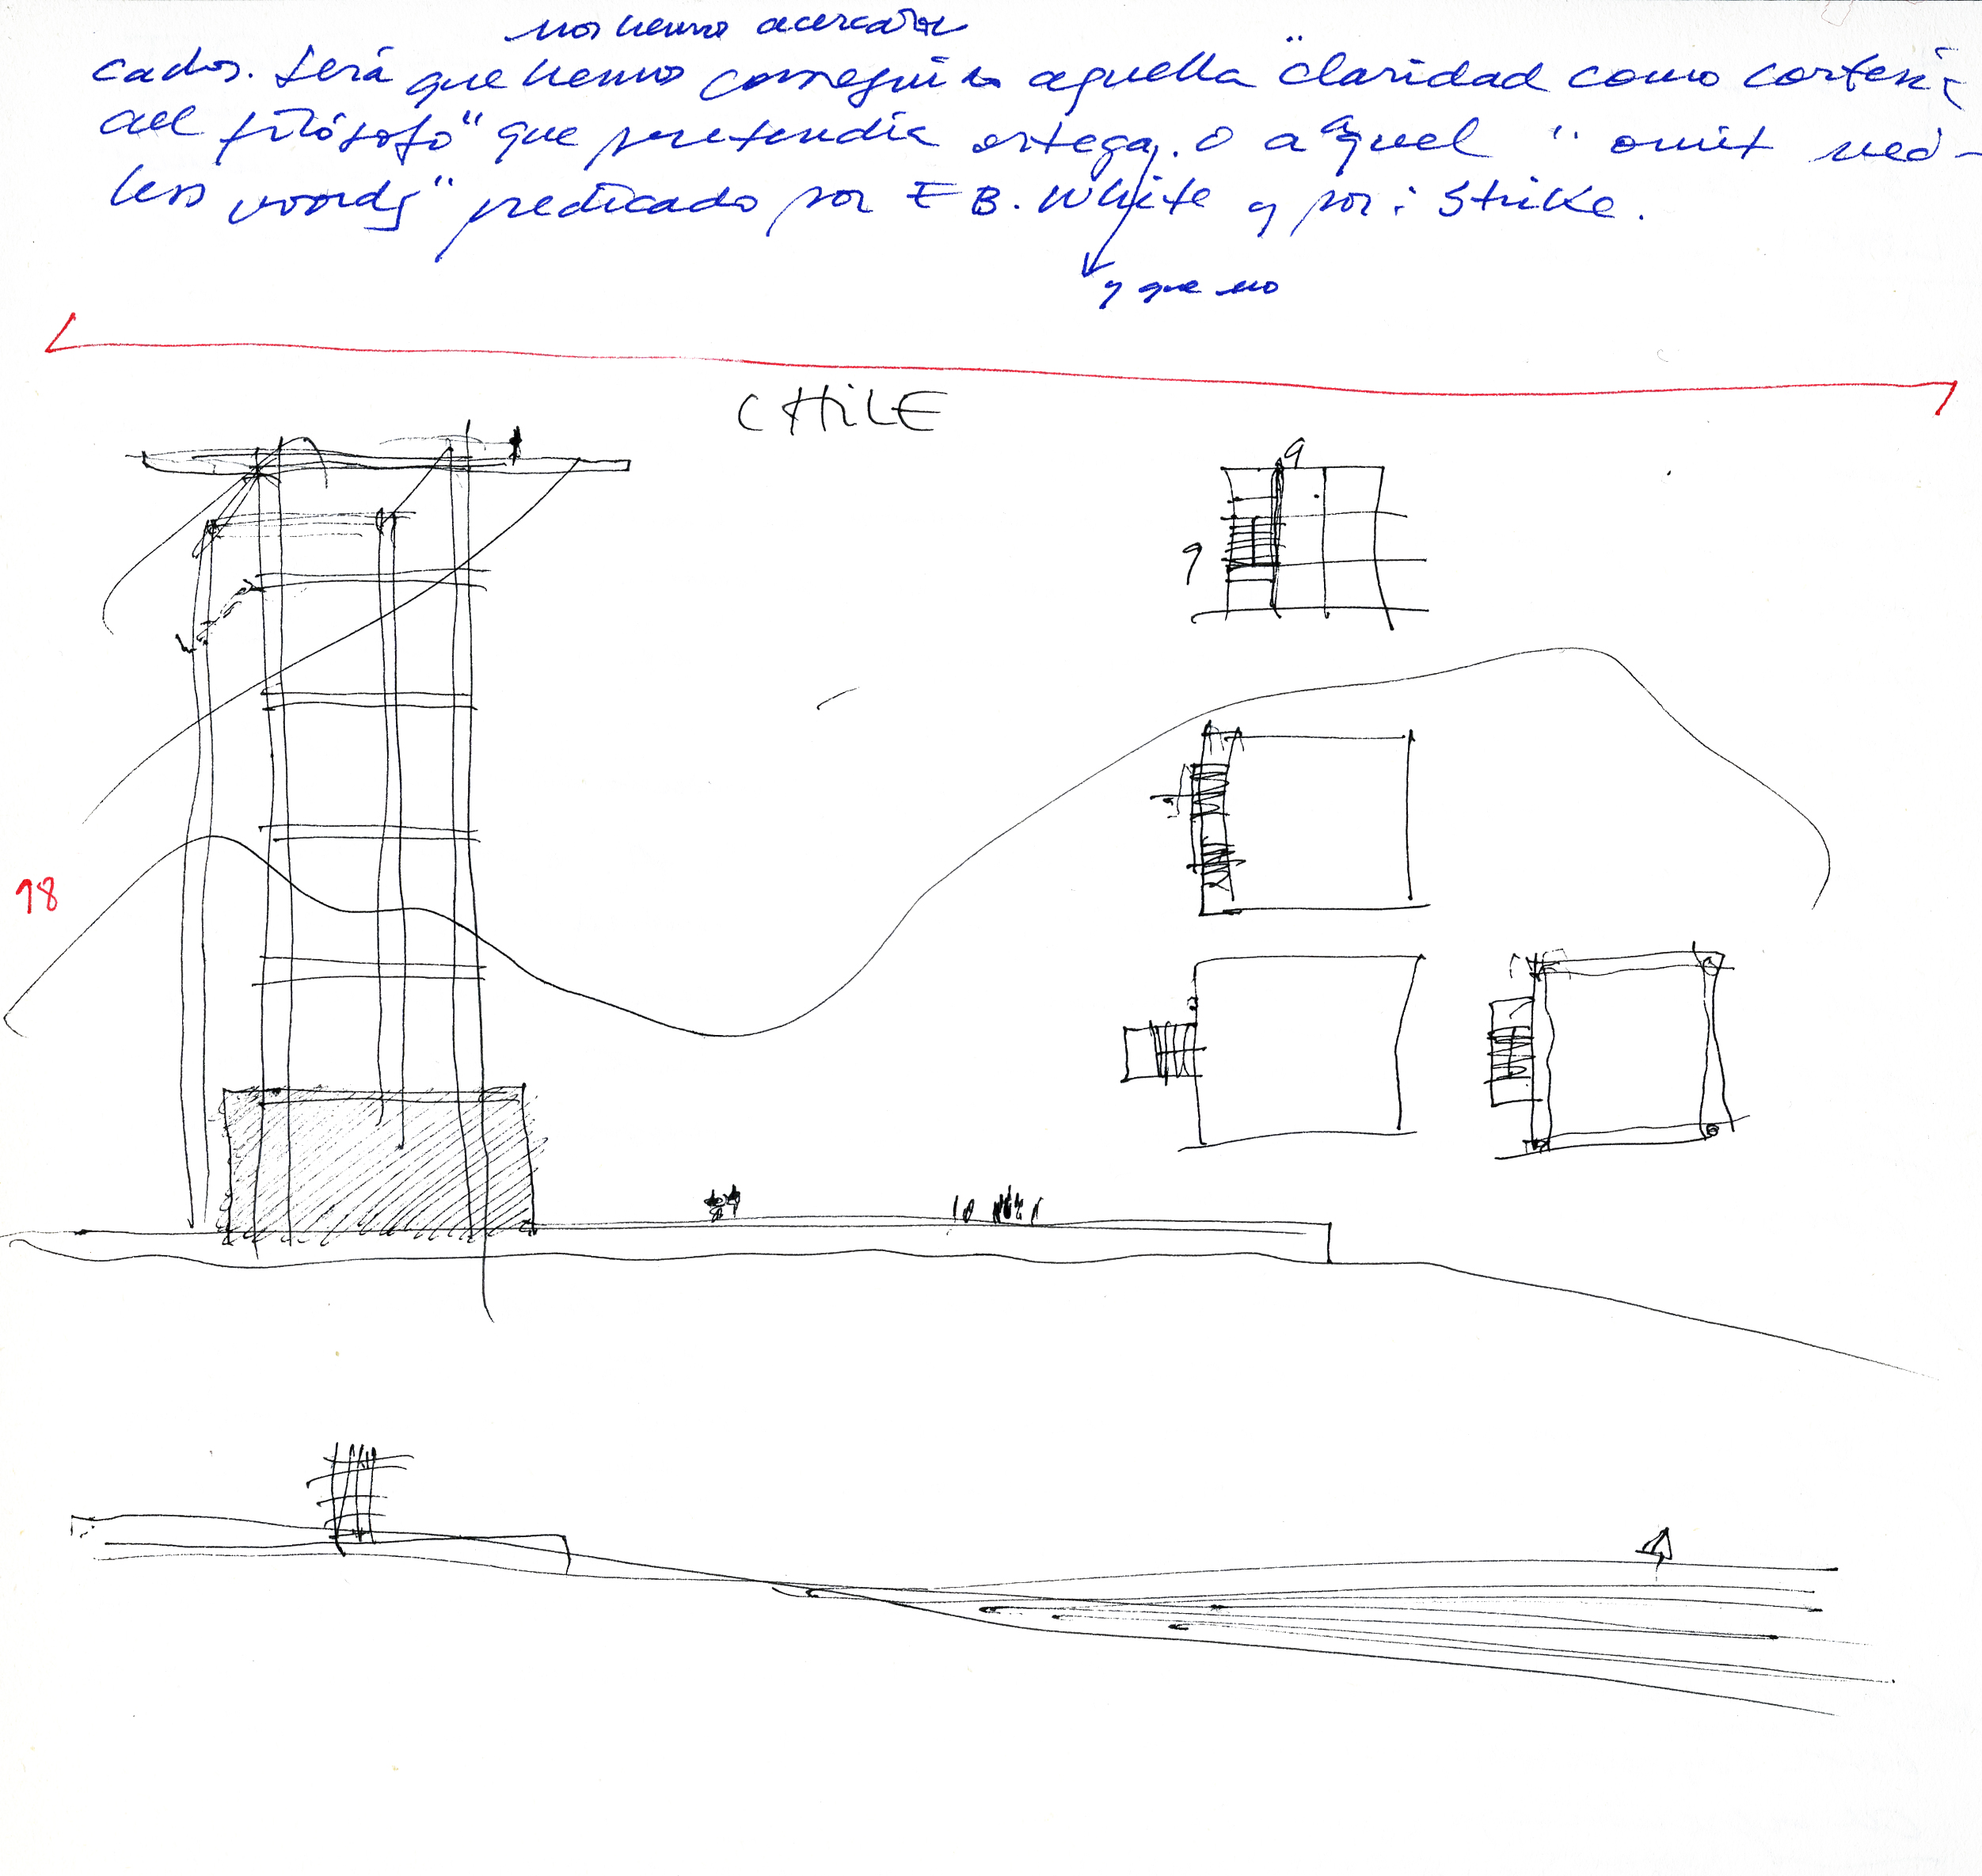 nos hemos acercado
cados. Será que hemos conseguido aquella "claridad como cortesía
del filósofo" que pretendía ortega. O a aquel "omit need-
less words" predicado por E B. White y por: Strike.
y que no
CHiLE
9
9
18